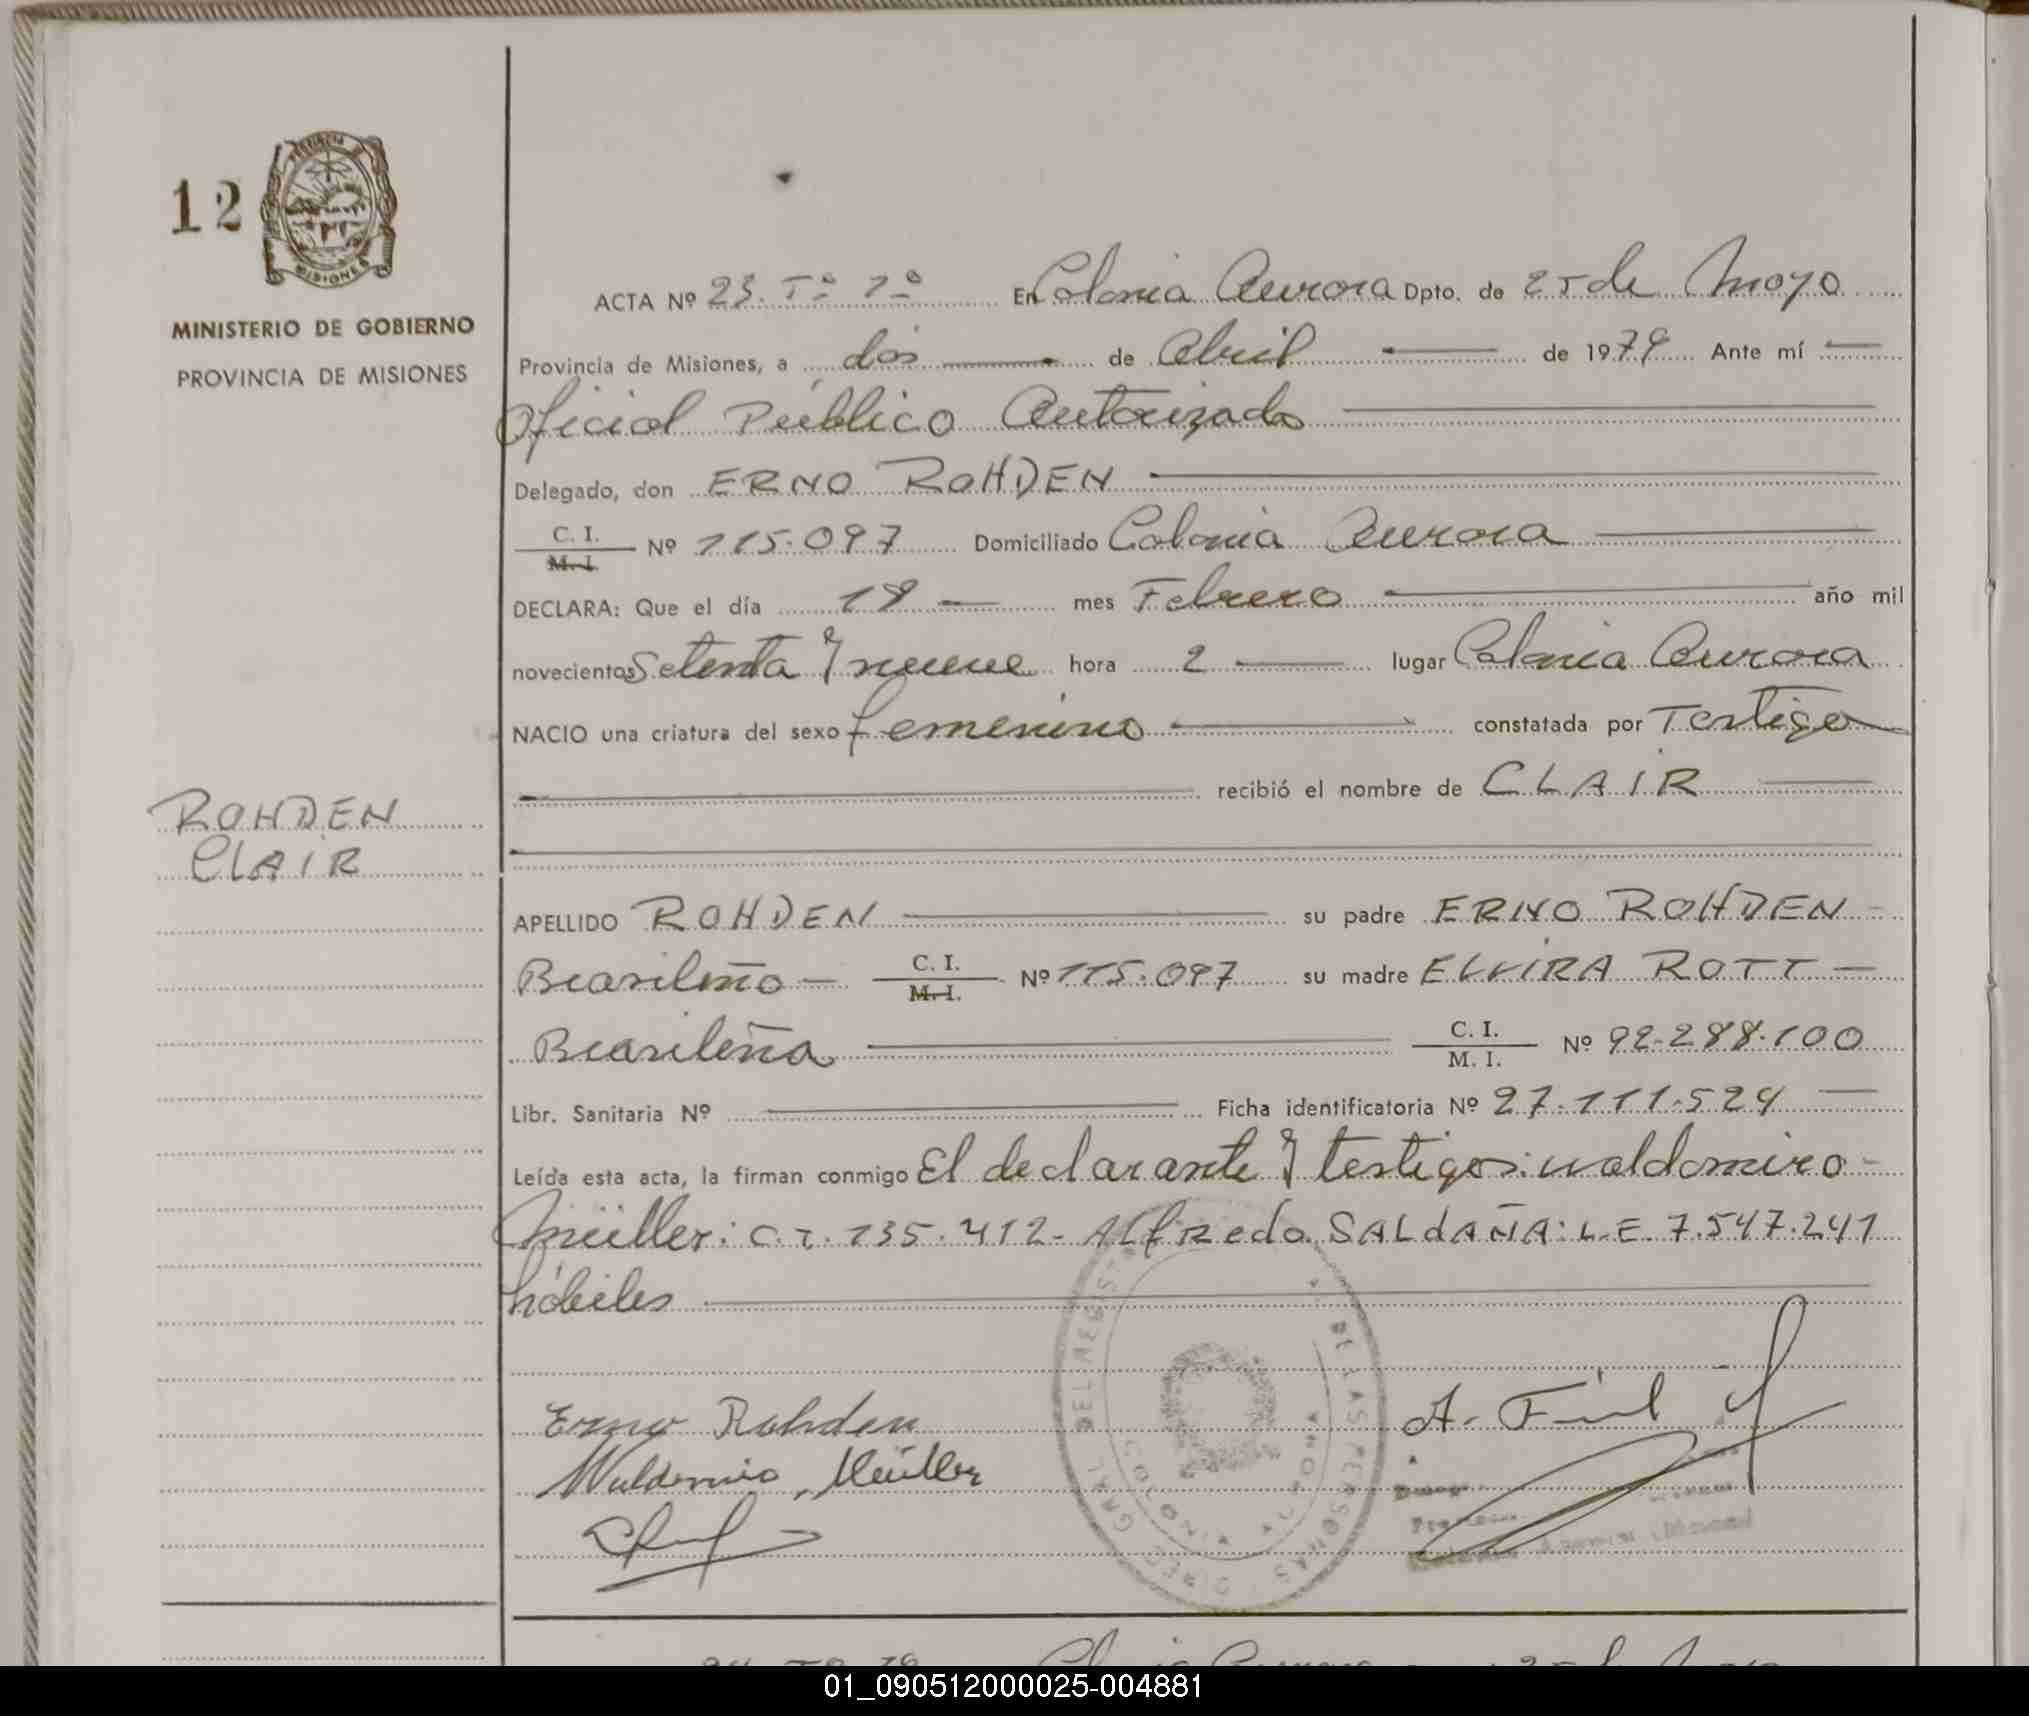 12
PROVINCIA DE
MISIONES
MINISTERIO DE GOBIERNO
PROVINCIA DE MISIONES
ACTA Nº 23. Tº 1º En Colonia Aurora Dpto. de 25 de Mayo
Provincia de Misiones, a dos de Abril de 1979 Ante mí
Oficial Público Autorizado
Delegado, don ERNO ROHDEN
C. I.
M. I. Nº 115.097 Domiciliado Colonia Aurora
DECLARA: Que el día 18 mes Febrero año mil
novecientos Setenta y nueve hora 2 lugar Colonia Aurora
NACIO una criatura del sexo femenino constatada por Testigo
recibió el nombre de CLAIR
ROHDEN
CLAIR
APELLIDO ROHDEN su padre ERNO ROHDEN
Brasileño C. I.
M. I. Nº 115.097 su madre ELVIRA ROTT
Brasileña C. I.
M. I. Nº 92.288.100
Libr. Sanitaria Nº Ficha identificatoria Nº 27.111.524
Leída esta acta, la firman conmigo El declarante y testigos: Waldomiro
Müller: C.I. 135.412- Alfredo SALdAÑA: L.E. 7.547.241
hábiles
Erno Rohden
Waldomiro Müller
A. Fiul
DIREC. GRAL DEL REGIST. DE LAS PERSONAS
COLONIA AURORA
01_090512000025-004881